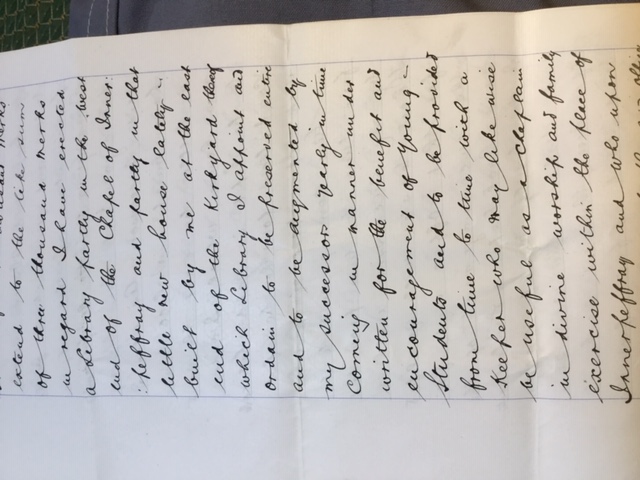 extend to the like sum
of three thousand merks
in regard I have erected
a Library partly in the west
end of the Chapel of Inner:
:peffray and partly in that
little new house lately -
built by me at the east
end of the Kirkyard thereof
which Library I appoint and
ordain to be preserved entire
and to be augmented by
my successors yearly in time
coming in manner under
written for the benefit and
encouragement of young -
students and to be provided
from time to time with a
Keeper who may like wise
be useful as a chaplain
in divine worship and family
exercise within the place of
Innerpeffray and who upon